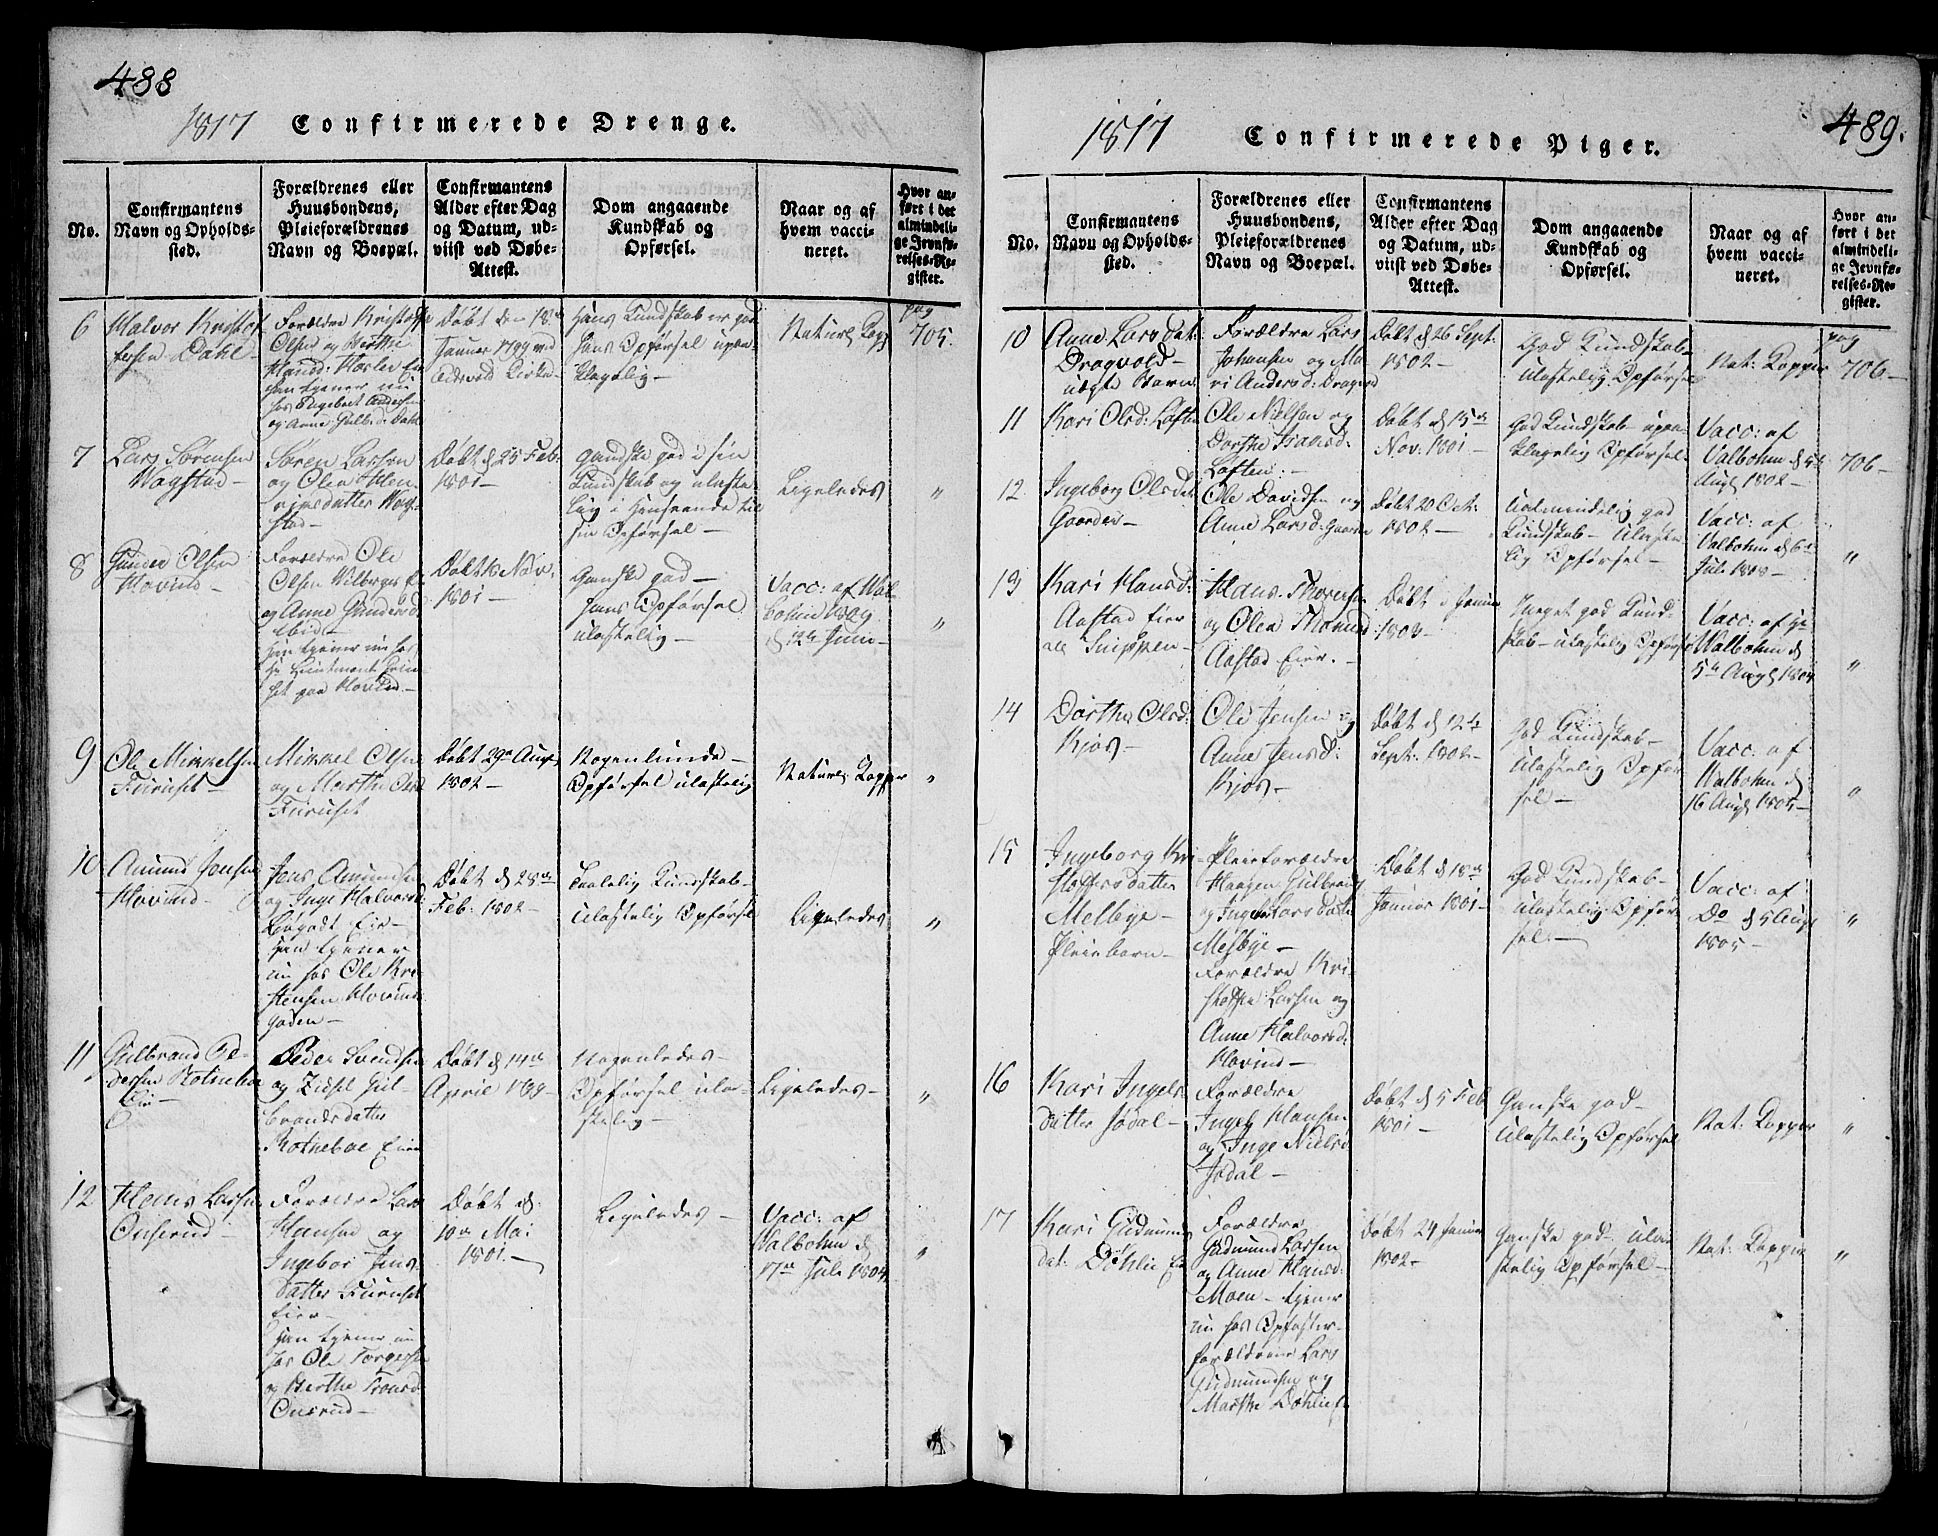 488
1817 Confirmerede Drenge.
No.
Confirmantens
Navn og Opholds-
sted.
Forældrenes eller
Huusbondens,
Pleieforældrenes
Navn og Boepæl.
Confirmantens
Alder efter Dag
og Datum, ud-
viist ved Døbe-
Attest.
Dom angaaende
Kundskab og
Opførsel.
Naar og af
hvem vacci-
neret.
Hvor an-
ført i det
almindeli-
ge Jevnfø-
relses-Re-
gister.
6
Halvor Kristof
fersen Dahl
Forældre Kristoffer
Olsen og Berthe
Han tjener nu
hos Ingebret Andersen
og Anne Gulbr:d: Dahl
Døbt den 18de
Januar 1799 ved
Eidsvold Kirke
Hans Kundskab er god
hans Opførsel upaa-
klagelig
Naturl: Kop:
pag
705.
7
Lars Sørensen
Wogstad
Søren Larsen
og Olea Osten
datter Wog-
stad
Døbt d 25 Feb:
1801
ganske god i sin
Kundskab og ulaste-
lig i Henseende til
sin Opførsel
Ligeledes
"
8
Gunder Olsen
Hovind
Forældre Ole
Olsen Wilberg Ei
og Anne Gundersd
ibid
han tjener nu hos
Hr Lieutenant
paa Hovind
Døbt Nov.
1801
Ganske god
hans Opførsel
ulastelig
Vacc: af Wal-
bohm 1809
d 12te Juni
"
9
Ole Mikkelsen
Furuset
Mikkel Olsen
og Marthe
Furuset
Døbt 29de Aug
1802
Nogenlunde
Opførsel ulastelig
Naturl: Kopper
"
10
Amund Jensen
Hovind
Jens Amundsen
og Inge Halvorsd
Eie
han tjener
nu hos Ole Kri-
stensen Hovind
gaden
Døbt d 28de
Feb: 1802
Taalelig Kundskab
ulastelig Opførsel
Ligeledes
"
11
Gulbrand Pe-
dersen Rotneboe
Eie
Peder Svendsen
og Zidsel Gul-
brandsdatter
Rotneboe Eie
Døbt d 14de
April 1799
Nogenledes
Opførsel ula-
stelig
Ligeledes
"
12
Hans Larsen
Onsrud
Forældre Lars
Hansen og
Ingebor Jens
datter Furuset
Eier
han tjener nu
hos Ole Torgersen
og Berthe
Onsrud
Døbt d
10de Mai
1801.
Ligeledes
Vacc: af
Walbohm d
17de Juli 1804
"
1817 Confirmerede Piger.
489.
No.
Confirmantens
Navn og Opholds-
sted.
Forældrenes eller
Huusbondens,
Pleieforældrenes
Navn og Boepæl.
Confirmantens
Alder efter Dag
og Datum, ud-
viist ved Døbe-
Attest.
Dom angaaende
Kundskab og
Opførsel.
Naar og af
hvem vacci-
neret.
Hvor an-
ført i det
almindeli-
ge Jevnfø-
relses-Re-
gister.
10
Anne Lars Dat:
Dragvold
uægte Barn
Forældre Lars
Johansen og Ma-
ri Andersd: Dragvold
Døbt d 26 Sept:
1802
God Kundskab
ulastelig Opførsel
Nat: Kopper
pag
706
11
Kari Olsd: Løften
Ole Nielsen og
Dorthe Hansd:
Løften
Døbt d 15de
Nov: 1801
God Kundskab upaa-
klagelig Opførsel
Vacc: af
Valbohm d 5te
Aug 1802
706
12
Ingeborg Olsdat:
Gaarder
Ole Davidsen og
Anne Larsd: Gaarder
Døbt 20 Oct:
1802
Almindelig god
Kundskab ulaste-
lig Opførsel
Vacc: af
Valbohm d 6te
Juli 1808
"
13
Kari Hansd:
Aastad Eier
Hans
og Olea
Aastad Eier.
Døbt Januar
1803
Meget god Kund-
skab ulastelig Opførsel
Vacc: af
Walbohm d
5te Aug 1804
"
14
Dorthe Olsd:
Kjos
Ole Jensen og
Anne Jensd:
Kjos
Døbt d 12te
Sept: 1802
God Kundskab
ulastelig Opfør
sel
Vacc: af
Walbohm d
16 Aug 1805
"
15
Ingeborg Kri-
stoffersdatter
Melbye
Pleiebarn
Pleieforældre
Haagen Gulbrands
og Ingeb: Larsdatter
Melbye
Forældre Kri-
stoffer Larsen og
Anne Halvorsd:
Hovind
Døbt d 18de
Januar 1801
God Kundskab
ulastelig Opfør
sel
Vacc: af
Do d 5 Aug
1805
"
16
Kari Ingels-
datter Jødal
Forældre
Ingel Hansen
og Inge Nielsd
Jødal
Døbt d 5 Feb
1801
Ganske god
ulastelig Opførsel
Nat: Kopper
"
17
Kari Gudmunds
dat: Døhlie Ei
Forældre
Gudmund Larsen
og Anne Hansd:
Moen tjener
nu hos Opfoster-
forældrene Lars
Gudmundsen og
Marthe Døhlie
Døbt 24 Januar
1802
Ganske god ula-
stelig Opførsel
Nat: Kopper
"